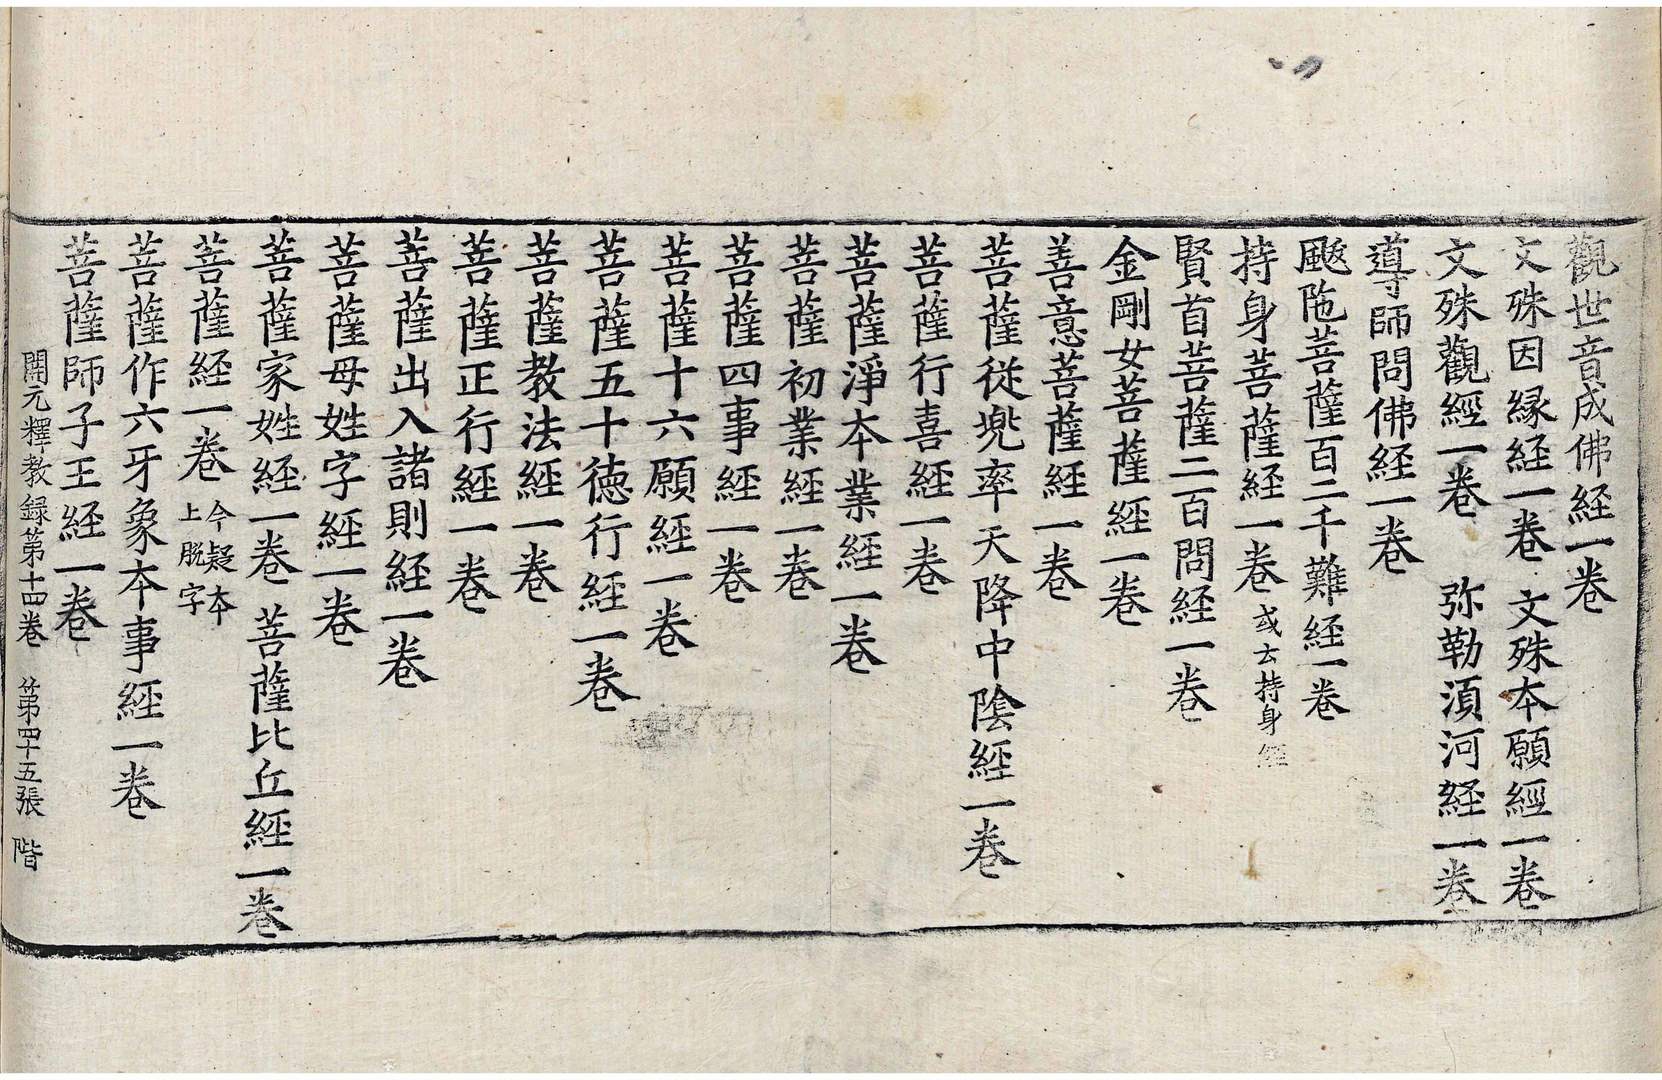 觀世音成佛經一卷
文殊因緣經一卷 文殊本願經一卷
文殊觀經一卷 弥勒湏河経一卷
導師問佛経一卷
颰陁菩薩百二千難經一卷
持身菩薩経一卷 或云持身經
賢首菩薩二百問経一卷
金剛女菩薩經一卷
善意菩薩経一卷
菩薩從兠率天降中陰經一卷
菩薩行喜経一卷
菩薩淨本業經一卷
菩薩初業経一卷
菩薩四事經一卷
菩薩十六願經一卷
菩薩五十徳行經一卷
菩薩教法經一卷
菩薩正行經一卷
菩薩出入諸則経一卷
菩薩母姓字經一卷
菩薩家姓経一卷 菩薩比丘經一卷
菩薩経一卷 今疑本上脫字
菩薩作六牙象本事經一卷
菩薩師子王経一卷
開元釋教録第十四卷 第四十五張 階